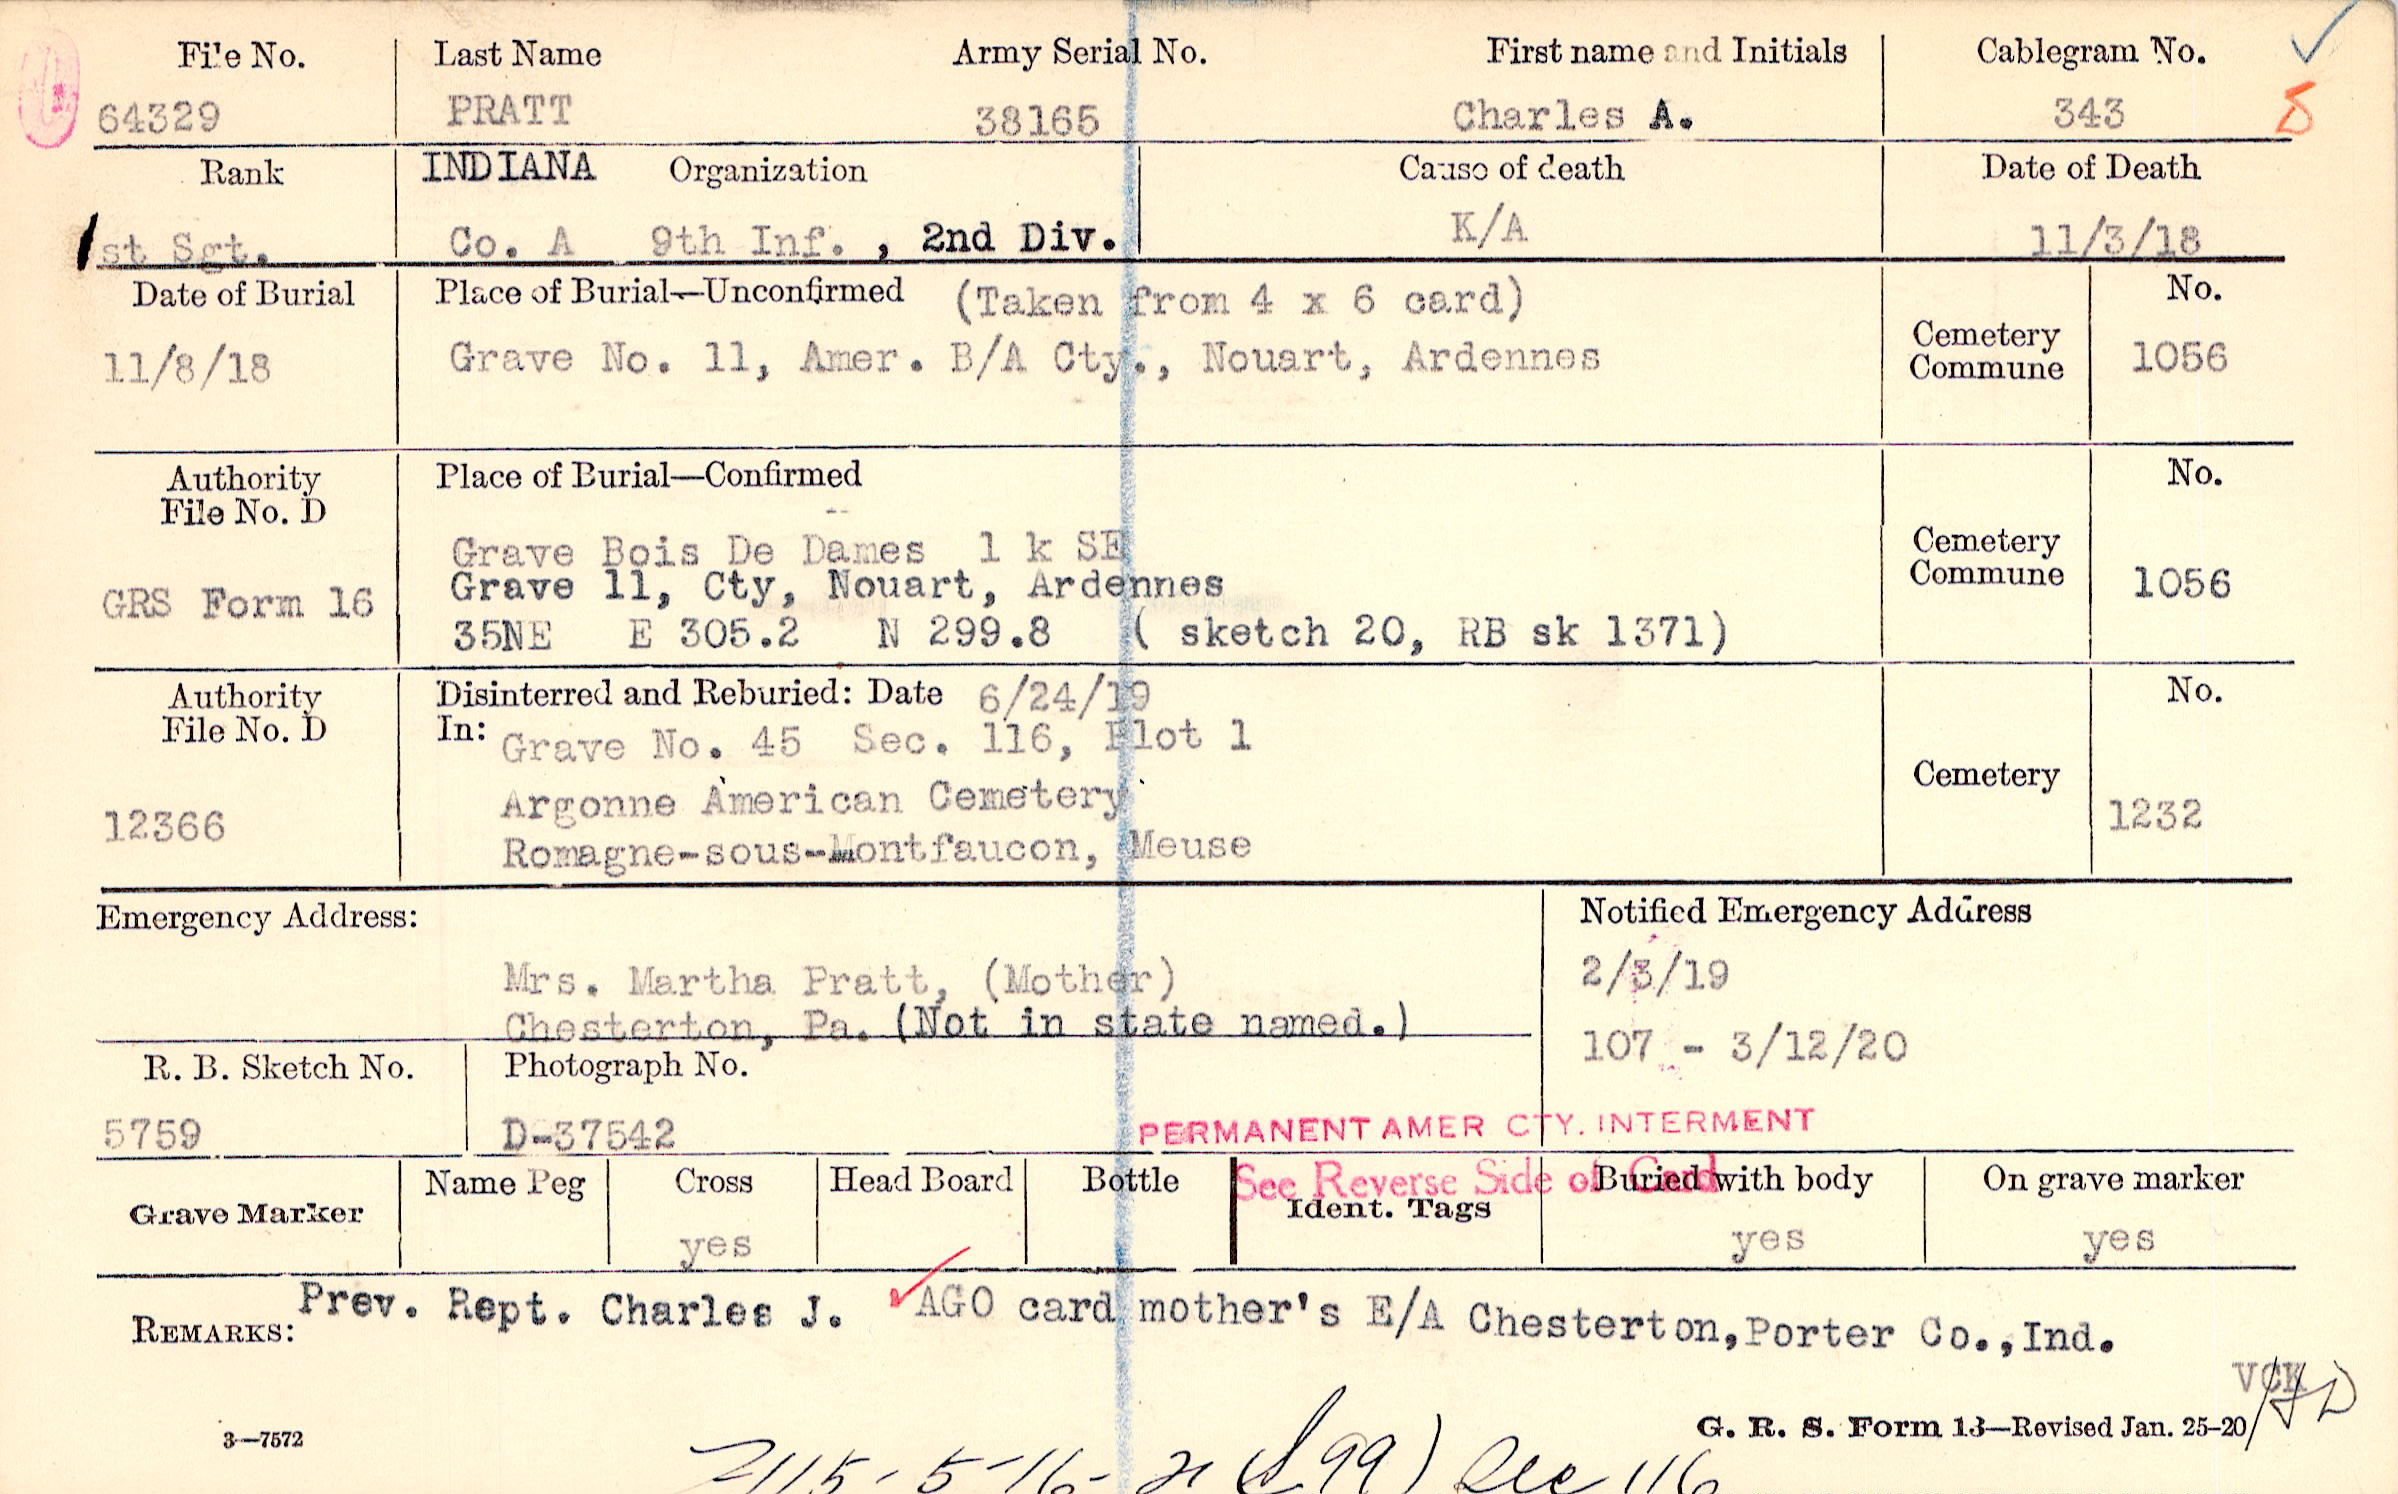 File No. Last Name Army Serial No. First name and Initials Cablegram No.
64329 PRATT 38165 Charles A. 343
Rank INDIANA Organization Cause of death Date of Death
1st Sgt. Co. A 9th Inf. , 2nd Div. K/A 11/3/18
Date of Burial Place of Burial—Unconfirmed (Taken from 4 x 6 card) No.
11/8/18 Grave No. 11, Amer. B/A Cty., Nouart, Ardennes Cemetery Commune 1056
Authority File No. D Place of Burial—Confirmed No.
Grave Bois De Dames 1 k SE
GRS Form 16 Grave 11, Cty, Nouart, Ardennes Cemetery Commune 1056
35NE E 305.2 N 299.8 ( sketch 20, RB sk 1371)
Authority File No. D Disinterred and Reburied: Date 6/24/19 No.
In: Grave No. 45 Sec. 116, Plot 1
12366 Argonne American Cemetery Cemetery 1232
Romagne-sous-Montfaucon, Meuse
Emergency Address: Notified Emergency Address
Mrs. Martha Pratt, (Mother) 2/3/19
Chesterton, Pa. (Not in state named.) 107 - 3/12/20
R. B. Sketch No. Photograph No.
5759 D-37542
PERMANENT AMER CTY. INTERMENT
See Reverse Side of Card
Grave Marker Name Peg Cross Head Board Bottle Ident. Tags Buried with body On grave marker
yes yes yes
REMARKS: Prev. Rept. Charles J. AGO card mother's E/A Chesterton,Porter Co.,Ind.
VCK
3—7572 G. R. S. Form 13—Revised Jan. 25-20
Sec 116